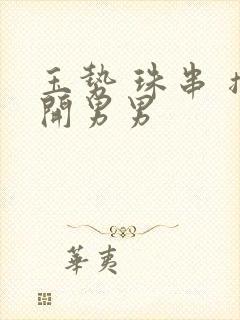 玉势 珠串 扩
開男男
華夷